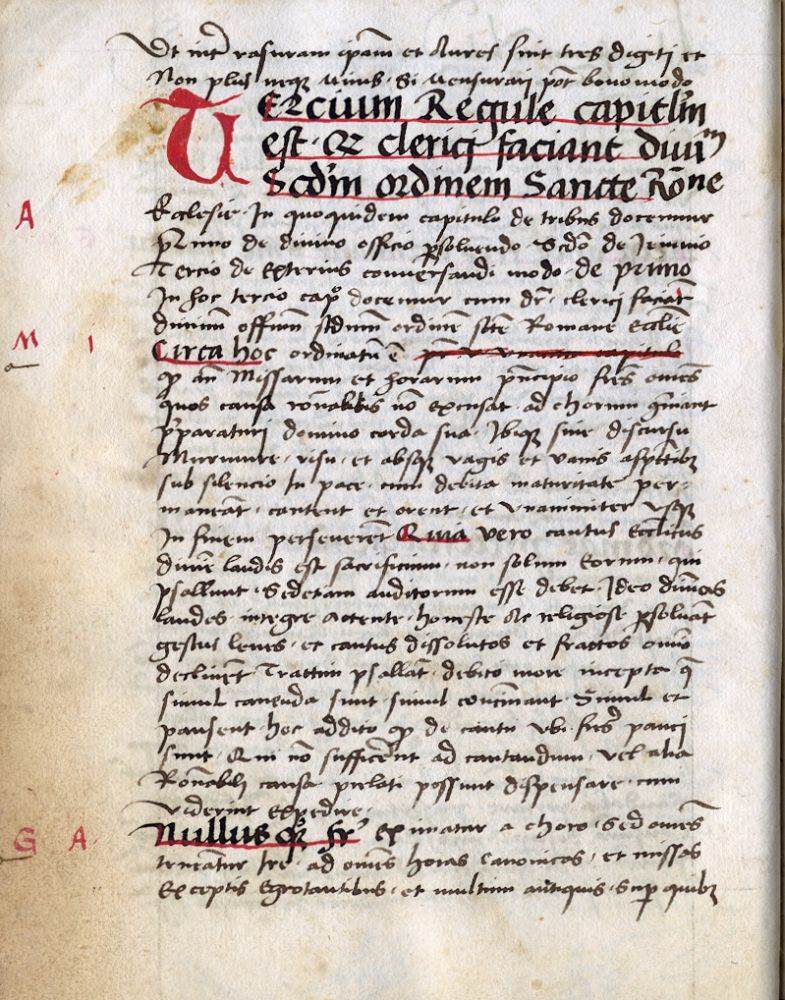 Ut int̄ rasuram ip̄am et Aures sint tres digiti et
Non plus neqꝫ minus · Si mensurari pōt bono modo
TErcium Regule capitl̄m
est · Qꝫ clerici faciant diui^m
Scd̄m ordinem Sancte Rōne
Ecclesie · In quoquidem capitulo de tribus docemur
p̄imo de diuino officio ꝑsoluendo · Scd̄o de Ieiunio
Tercio de Exterius conuersandi modo · de primo
In hoc tercio cap̊ docemur cum dr̄ · clerici faciāt
diuinum offium scd̄um ordinē scē Romane Eccl̄ie
Circa hoc ordinatū ē
ꝙ an̄ Missarum et horarum p̄ncipio fr̄es om̄es
quos causa rōnabilis nō excusat · ad chorum ꝯueniant
p̄paraturi domino corda sua · Ibiqꝫ sine discursu
Murmure · risu · et absqꝫ vagis et vanis aspectibꝫ
sub silencio In pace · cum debita maturitate per-
maneāt · cantent et orent · et vnanimiter vsqꝫ
In finem perseuerēt Quia vero cantus Eccl̄icus
diuine laudis est sacrificium · non solum Eorum · qui
psallunt · Sed etiam auditorum esse debet · Ideo diuinas
laudes · integre Attente · honeste Ac religiose ꝑsoluāt
gestus leues · et cantus dissolutos et fractos om̄io
declinēt · Tractim psallāt · debito more incepta q̄
simul canenda sunt · simul concinnant · Simul et
pausent · hoc addito ꝙ de cantu vbi fr̄es pauci
sunt · Qui nō sufficerēt ad cantandum · vel alia
Rōnabili causa prelati possunt dispensare · cum
viderint expedire ·
Nullus qꝫ fr̄ eximatur a choro · sed om̄es
teneātur ire · ad om̄es horas canonicas · et missas
Exceptis Egrotantibus · et multum antiquis · Suꝑ quibꝫ
A
M I
G A